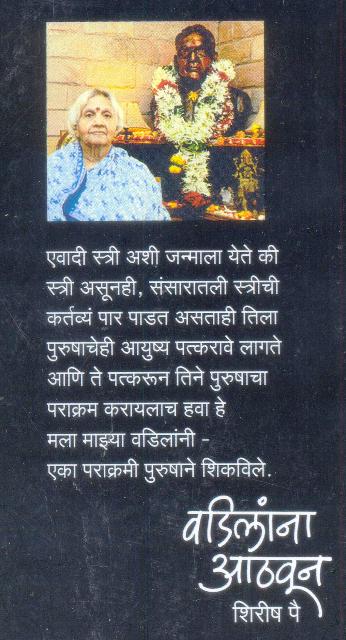 एवादी स्त्री अशी जन्माला येते की
स्त्री असूनही, संसारातली स्त्रीची
कर्तव्यं पार पाडत असताही तिला
पुरुषाचेही आयुष्य पत्करावे लागते
आणि ते पत्करून तिने पुरुषाचा
पराक्रम करायलाच हवा हे
मला माझ्या वडिलांनी -
एका पराक्रमी पुरुषाने शिकविले.
वडिलांना
आठवून
शिरीष पै